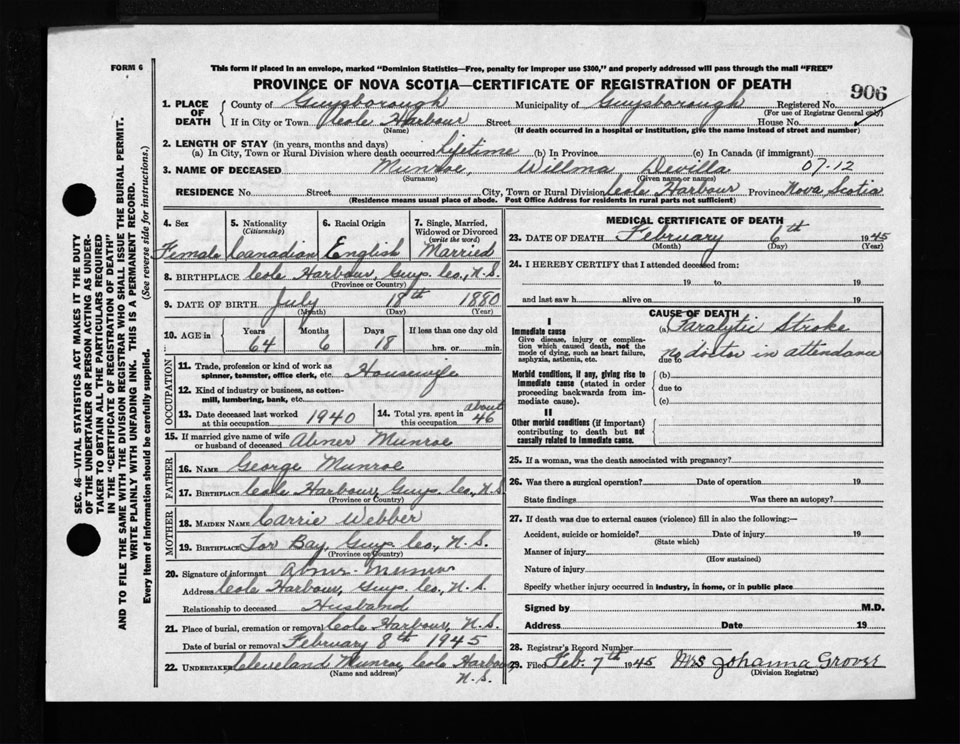 FORM 6
This form if placed in an envelope, marked "Dominion Statistics—Free, penalty for improper use $300," and properly addressed will pass through the mail "FREE"
PROVINCE OF NOVA SCOTIA—CERTIFICATE OF REGISTRATION OF DEATH
906
SEC. 46—VITAL STATISTICS ACT MAKES IT THE DUTY
OF THE UNDERTAKER OR PERSON ACTING AS UNDER-
TAKER TO OBTAIN ALL THE PARTICULARS REQUIRED
IN THE "CERTIFICATE OF REGISTRATION OF DEATH"
AND TO FILE THE SAME WITH THE DIVISION REGISTRAR WHO SHALL ISSUE THE BURIAL PERMIT.
WRITE PLAINLY WITH UNFADING INK. THIS IS A PERMANENT RECORD.
Every item of information should be carefully supplied. (See reverse side for instructions.)
1. PLACE OF DEATH
County of Guysborough Municipality of Guysborough Registered No.
(For use of Registrar General only)
If in City or Town Cole Harbour Street House No.
(Name) (If death occurred in a hospital or institution, give the name instead of street and number)
2. LENGTH OF STAY (in years, months and days)
(a) In City, Town or Rural Division where death occurred lifetime (b) In Province (c) In Canada (if immigrant)
3. NAME OF DECEASED Munroe, Willma Devilla 07-12
(Surname) (Given name or names)
RESIDENCE No Street City, Town or Rural Division Cole Harbour Province Nova Scotia
(Residence means usual place of abode. Post Office Address for residents in rural parts not sufficient)
4. Sex 5. Nationality (Citizenship) 6. Racial Origin 7. Single, Married, Widowed or Divorced (write the word)
Female Canadian English Married
8. BIRTHPLACE Cole Harbour, Guys. Co., N.S.
(Province or Country)
9. DATE OF BIRTH July 18th 1880
(Month) (Day) (Year)
10. AGE in Years Months Days If less than one day old
64 6 18 hrs. or min.
OCCUPATION
11. Trade, profession or kind of work as
spinner, teamster, office clerk, etc. Housewife
12. Kind of industry or business, as cotton-
mill, lumbering, bank, etc.
13. Date deceased last worked at this occupation 1940
14. Total yrs. spent in this occupation about 46
15. If married give name of wife or husband of deceased Abner Munroe
FATHER
16. NAME George Munroe
17. BIRTHPLACE Cole Harbour, Guys. Co., N.S.
(Province or Country)
MOTHER
18. MAIDEN NAME Carrie Webber
19. BIRTHPLACE Tor Bay, Guys. Co., N.S.
(Province or Country)
20. Signature of informant Abner Munroe
Address Cole Harbour, Guys. Co., N.S.
Relationship to deceased Husband
21. Place of burial, cremation or removal Cole Harbour, N.S.
Date of burial or removal February 8th 1945
22. UNDERTAKER Cleveland Munroe, Cole Harbour,
(Name and address) N.S.
MEDICAL CERTIFICATE OF DEATH
23. DATE OF DEATH February 6th 1945
(Month) (Day) (Year)
24. I HEREBY CERTIFY that I attended deceased from:
19 to 19
and last saw h alive on 19
CAUSE OF DEATH
I
Immediate cause (a) Paralytic Stroke
Give disease, injury or complica-
tion which caused death, not the
mode of dying, such as heart failure,
asphyxia, asthenia, etc.
due to no doctor in attendance
Morbid conditions, if any, giving rise to
immediate cause (stated in order
proceeding backwards from im-
mediate cause).
(b)
due to
(c)
II
Other morbid conditions (if important)
contributing to death but not
causally related to immediate cause.
25. If a woman, was the death associated with pregnancy?
26. Was there a surgical operation? Date of operation 19
State findings Was there an autopsy?
27. If death was due to external causes (violence) fill in also the following:—
Accident, suicide or homicide? Date of injury 19
(State which)
Manner of injury
(How sustained)
Nature of injury
Specify whether injury occurred in industry, in home, or in public place
Signed by M.D.
Address Date 19
28. Registrar's Record Number
29. Filed Feb. 7th 1945 Mrs Johanna Grover
(Division Registrar)